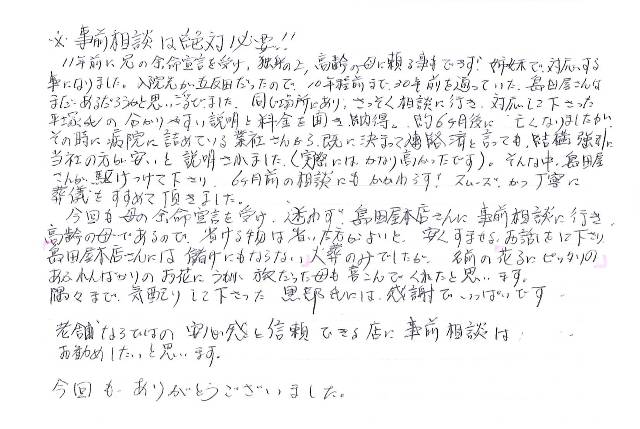 ※ 事前相談は絶対必要!!
11年前に兄の余命宣言を受け、独身の上、高齢の母に頼る事もできず! 姉妹で対応する
事になりました。入院先が五反田だったので、10年程前まで、20年前を通っていた、島田屋さんは
まだあるだろうかと思い、ありました。同じ場所にあり、さっそく相談に行き、対応して下さった
平塚氏の分かりやすい説明と料金を聞き納得。約6ヶ月後に亡くなりましたが、
その時に病院に詰めている業社さんから、既に決まって連絡済と言っても、結構強引に
当社の方が安いと説明されました。(実際にはかなり高かったです)。そんな中、島田屋
さんが駆けつけて下さり、6ヶ月前の相談にもかかわらず! スムーズかつ丁寧に
葬儀をすすめて頂きました。
今回も母の余命宣言を受け、迷わず島田屋本店さんに事前相談に行き、
高齢の母であるので、省ける物は省いた方がよいと、安くすませるお話をして下さり
島田屋本店さんには儲けにもならない火葬のみでしたが、名前の花子にピッタリの
あふれんばかりのお花にうもれ旅だった母も喜こんでくれたと思います。
隅々まで、気配りして下さった黒部氏には、感謝でいっぱいです
老舗ならではの安心感と信頼できる店に事前相談は
お勧めしたいと思います。
今回もありがとうございました。